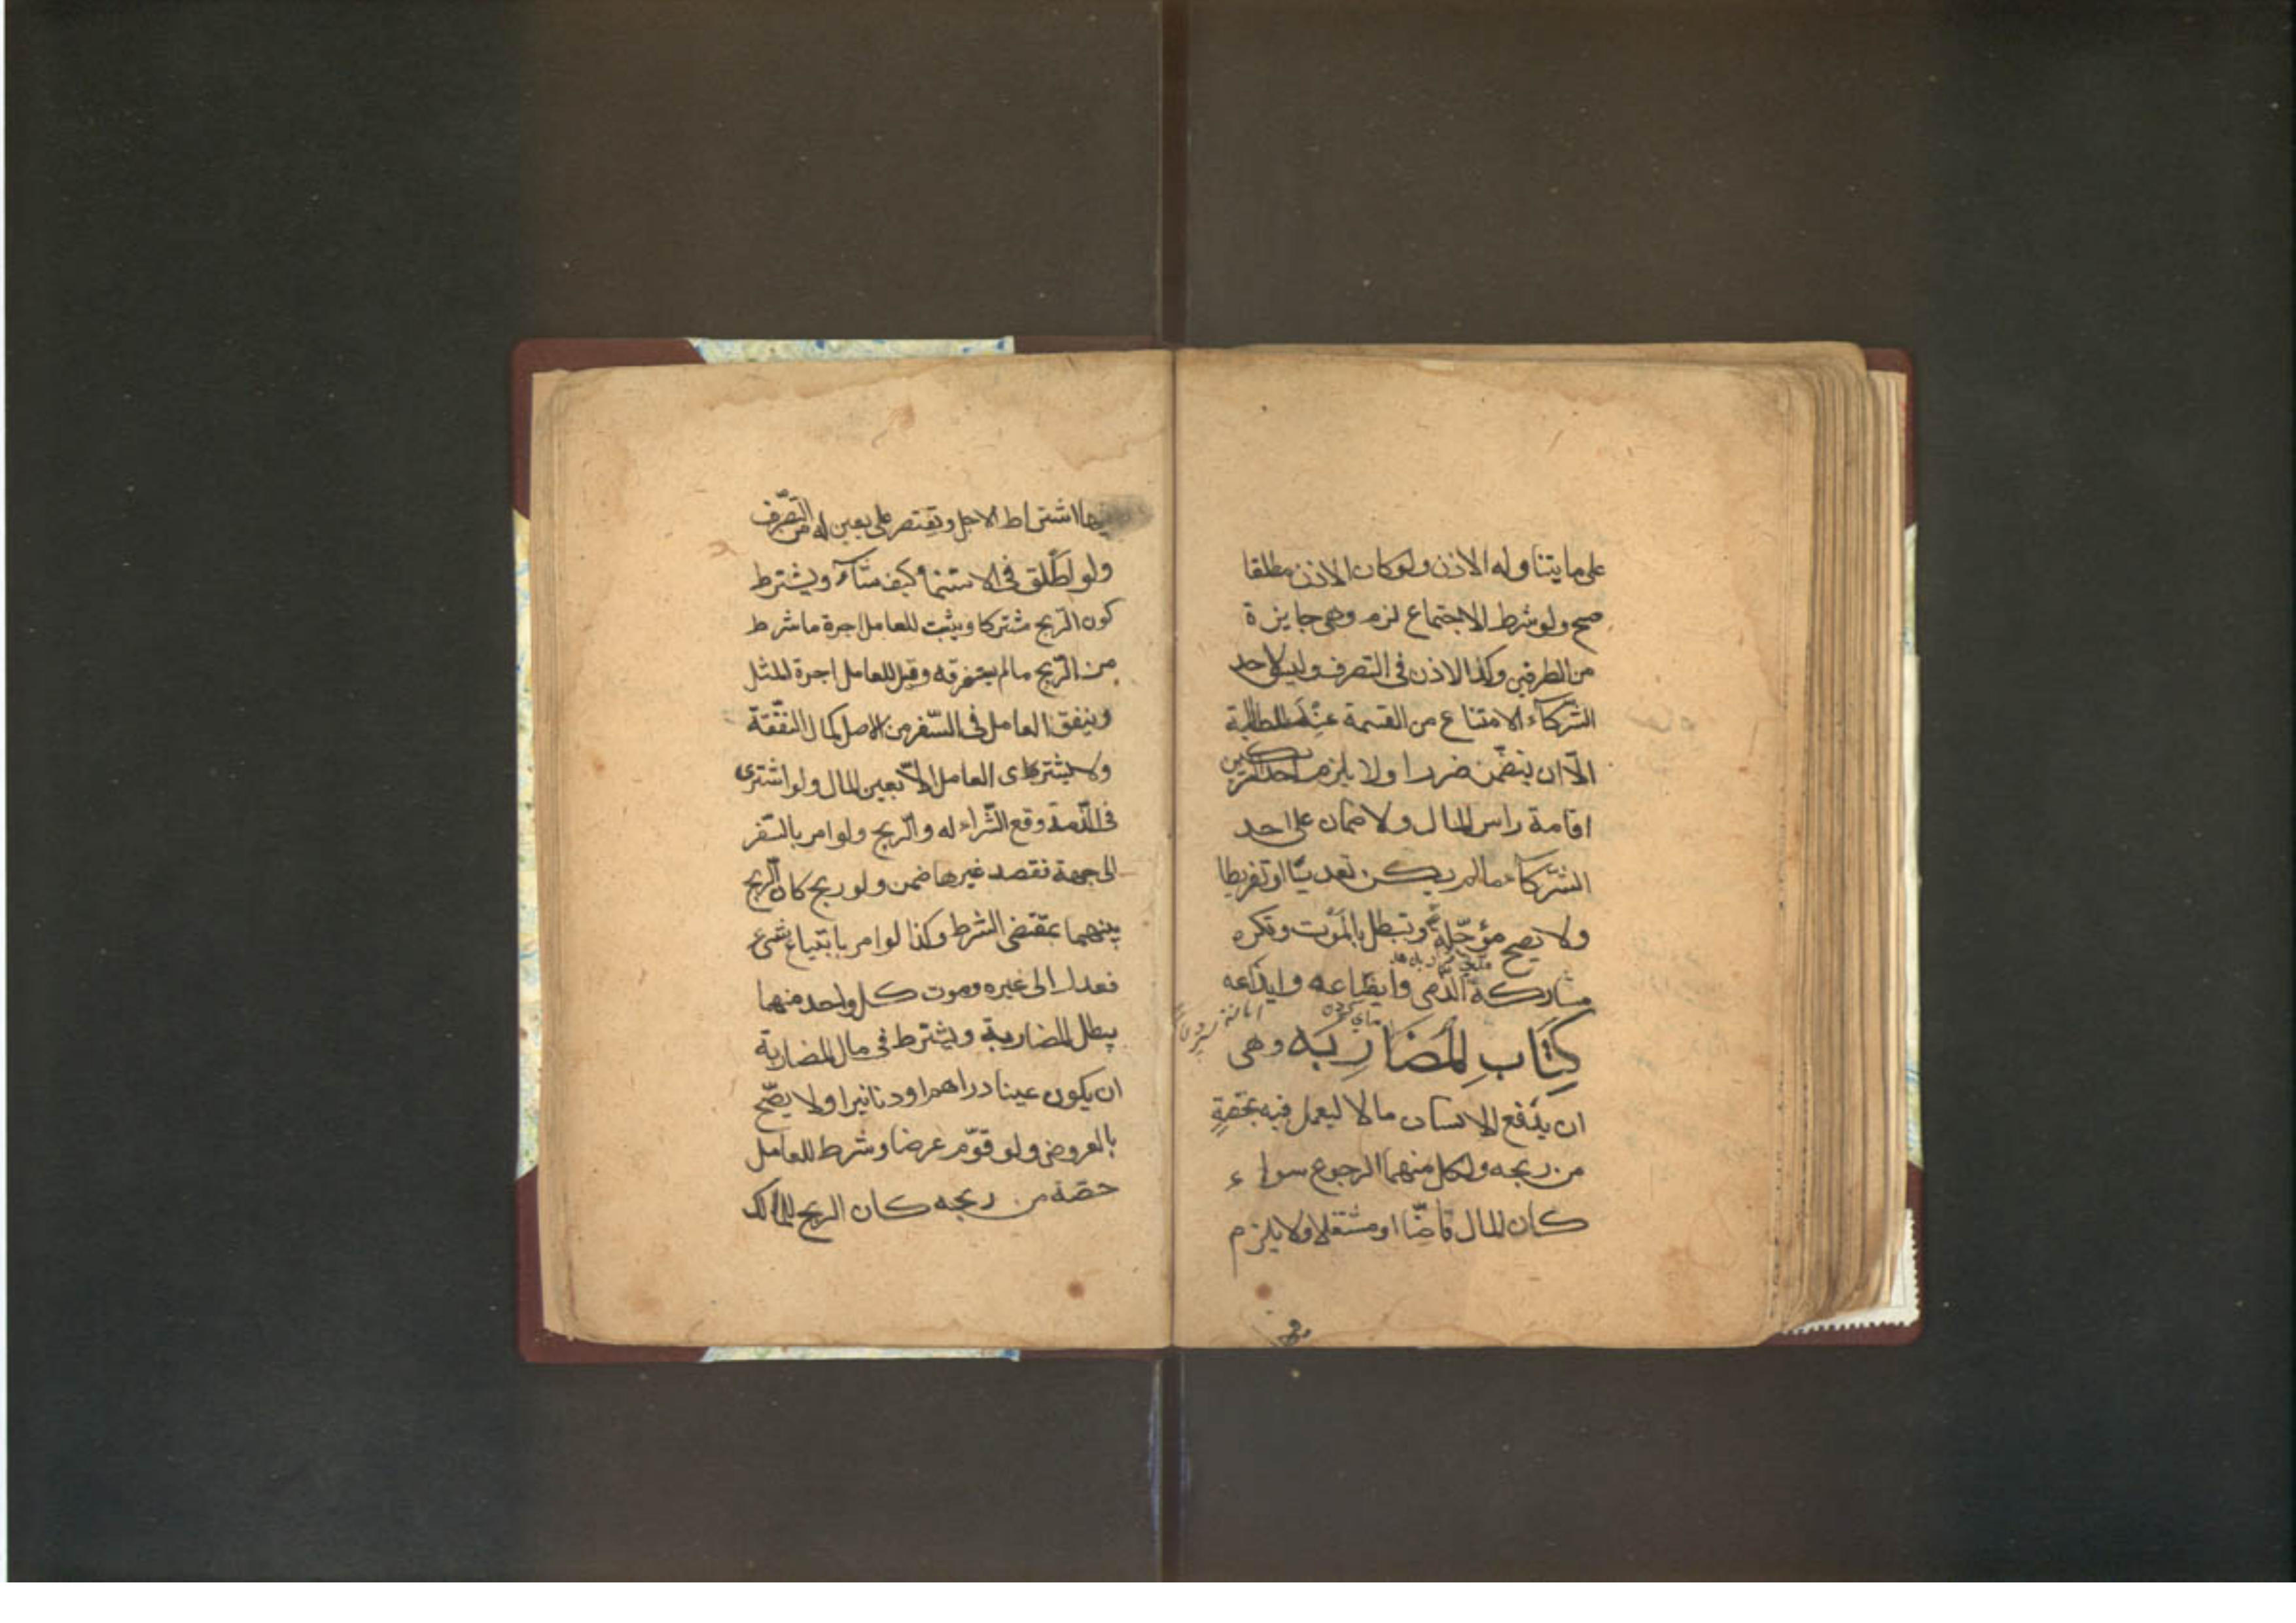 على ما يتناوله الاذن ولو كان الاذن مطلقا
صح ولو شرط الاجتماع لزم وهى جايزة
من الطرفين وكذا الاذن فى التصرف وليس لاحد
الشركآء الامتناع من القسمة عند المطالبة
الّا ان يتضمّن ضررا ولا يلزم احد الشريكين
اقامة راس المال ولا ضمان على احد
الشّركآء ما لم يكن تعديّا او تفريطا
ولا تصح مؤجّلة وتبطل بالمَوْت وتكره
مشاركة الذّمى وابضاعه وايداعه
كِتَاب المُضَارِبَه وهى
ان يَدْفع الانسان مالا ليعمل فيه بحصّةٍ
من ربحه ولكل منهما الرجوع سواء
كان المال ناضّا او مشتغلا ولا يلزم
فيها
فيها اشتراط الاجل وتقتصر على تعيين له من التّصّرف
ولو اطلق فى الاستنما كيف شآء ويشترط
كون الرّبح مشتركا ويثبت للعامل اجرة ما شرط
من الرّبح ما لم يستغرقه وقيل للعامل اجرة المثل
وينفق العامل فى السّفر من الاصل كمال النفقة
ولا يشترى العامل الّا بعين المال ولو اشترى
فى الذّمة وقع الشّراء له والرّبح ولو امر بالسّفر
الى جهة فقصد غيرها ضمن ولو ربح كان الرّبح
بينهما بمقتضى الشرط وكذا لو امر بابتياع شىء
فعدل الى غيره وموت كل واحد منهما
يبطل المضاربة ويشترط فى مال المضاربة
ان يكون عينا دراهم او دنانيرا ولا يصّح
بالعروض ولو قوّم عرضا وشرط للعامل
حصّة من ربحه كان الربح للمالك